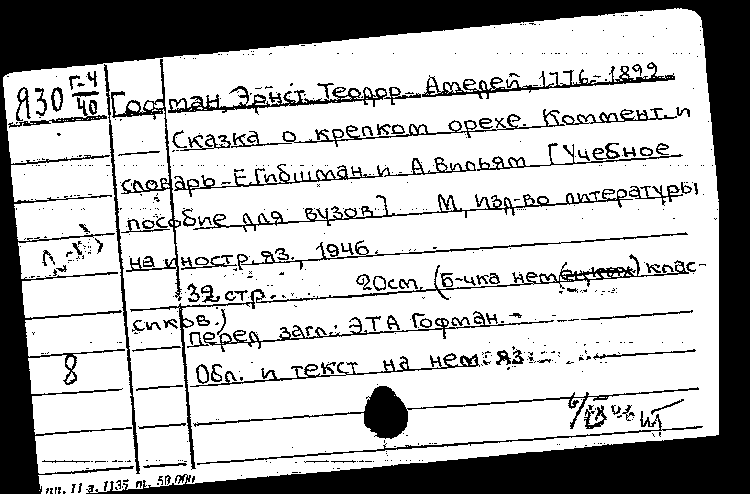 Я30 Г-4/40 Гофман, Эрнст Теодор Амедей, 1776-1822
Сказка о крепком орехе. Коммент. и
словарь Е. Гибшман и А. Вильям [Учебное
пособие для вузов]. М, Изд-во литературы
на иностр. яз., 1946.
32 стр. 20см. (Б-чка нем(ецких) клас-
сиков.)
Перед загл.: Э.Т.А Гофман.
8 Обл. и текст на нем. яз.
6/IX 46